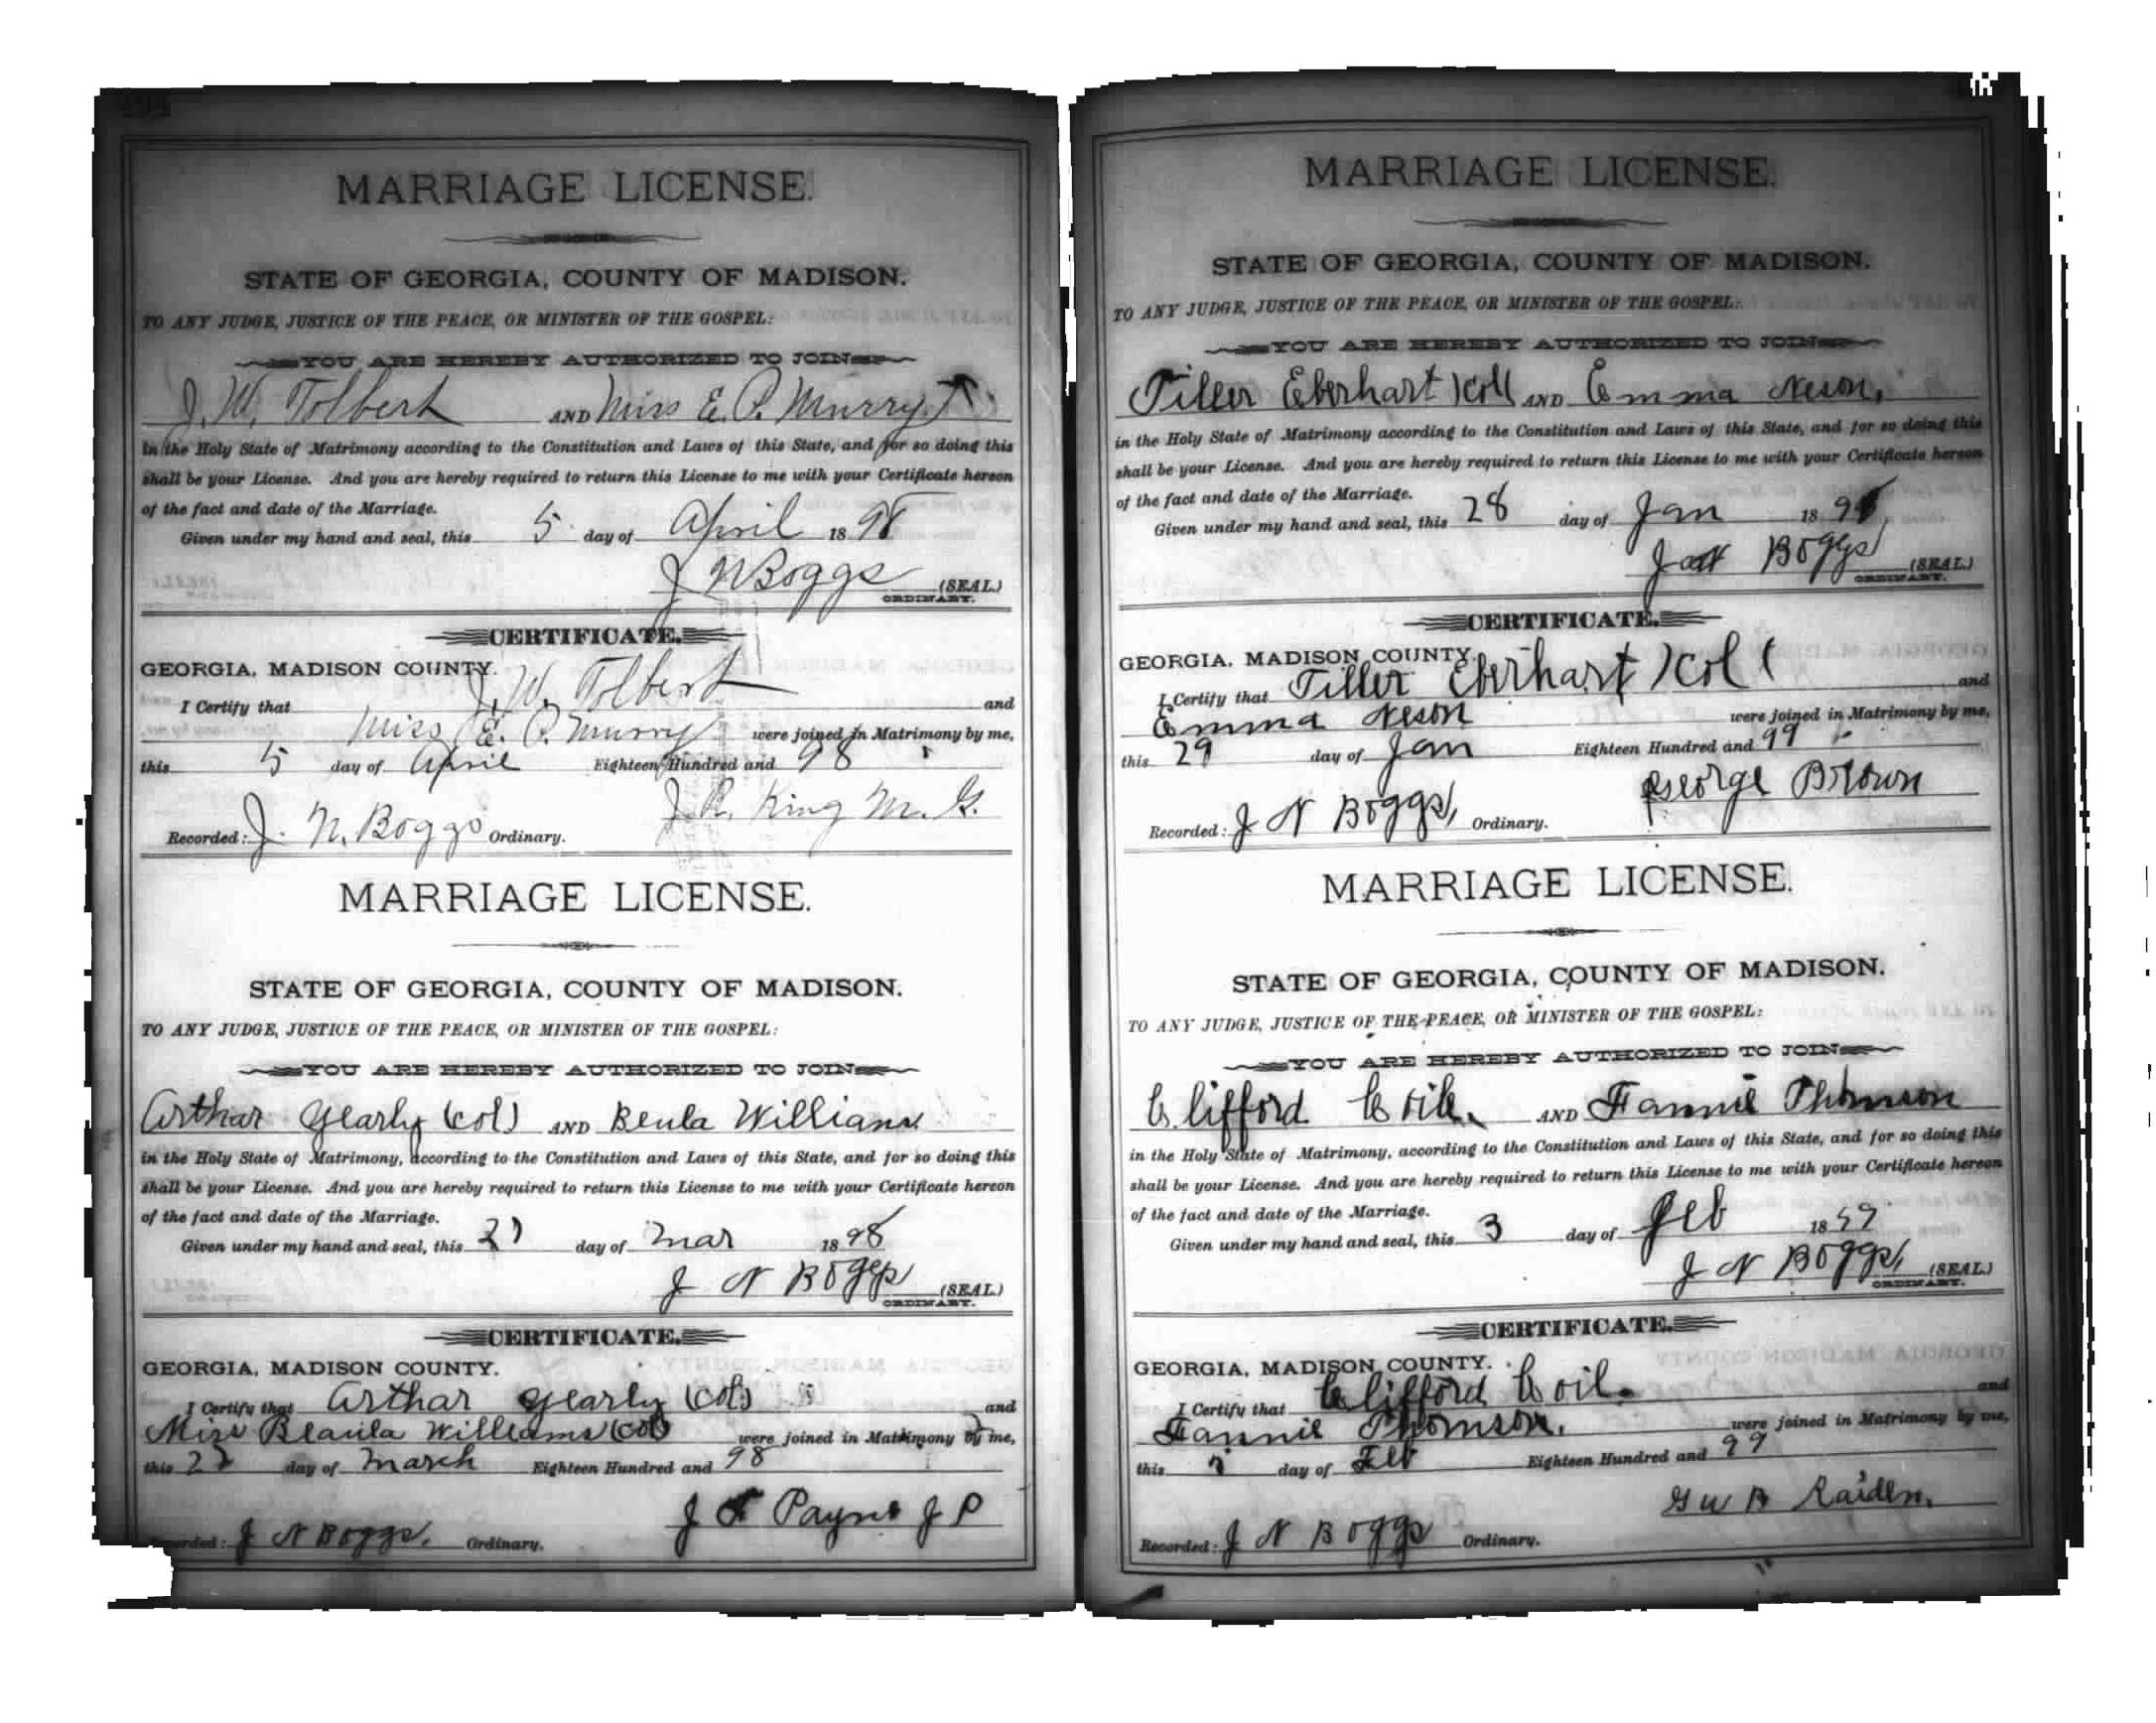 MARRIAGE LICENSE.
STATE OF GEORGIA, COUNTY OF MADISON.
TO ANY JUDGE, JUSTICE OF THE PEACE, OR MINISTER OF THE GOSPEL:
YOU ARE HEREBY AUTHORIZED TO JOIN
J. W. Tolbert AND Miss E. P. Murry
in the Holy State of Matrimony according to the Constitution and Laws of this State, and for so doing this
shall be your License. And you are hereby required to return this License to me with your Certificate hereon
of the fact and date of the Marriage.
Given under my hand and seal, this 5 day of April 1898
J N Boggs (SEAL.)
ORDINARY.
CERTIFICATE.
GEORGIA, MADISON COUNTY.
I Certify that J. W. Tolbert and
Miss E. P. Murry were joined in Matrimony by me,
this 5 day of April Eighteen Hundred and 98
J. R. King M. G.
Recorded: J. N. Boggs Ordinary.
MARRIAGE LICENSE.
STATE OF GEORGIA, COUNTY OF MADISON.
TO ANY JUDGE, JUSTICE OF THE PEACE, OR MINISTER OF THE GOSPEL:
YOU ARE HEREBY AUTHORIZED TO JOIN
Arthar Yearly (col) AND Beula Williams
in the Holy State of Matrimony, according to the Constitution and Laws of this State, and for so doing this
shall be your License. And you are hereby required to return this License to me with your Certificate hereon
of the fact and date of the Marriage.
Given under my hand and seal, this day of Mar 1898
J N Boggs (SEAL.)
ORDINARY.
CERTIFICATE.
GEORGIA, MADISON COUNTY.
I Certify that Arthar Yearly (col) and
Miss Beaula Williams (col) were joined in Matrimony by me,
this day of March Eighteen Hundred and 98
J Payne J P
Recorded: J N Boggs. Ordinary.
MARRIAGE LICENSE.
STATE OF GEORGIA, COUNTY OF MADISON.
TO ANY JUDGE, JUSTICE OF THE PEACE, OR MINISTER OF THE GOSPEL:
YOU ARE HEREBY AUTHORIZED TO JOIN
Tiller Eberhart (col) AND Emma Neson,
in the Holy State of Matrimony according to the Constitution and Laws of this State, and for so doing this
shall be your License. And you are hereby required to return this License to me with your Certificate hereon
of the fact and date of the Marriage.
Given under my hand and seal, this 28 day of Jan 189
J N Boggs (SEAL.)
ORDINARY.
CERTIFICATE.
GEORGIA, MADISON COUNTY.
I Certify that Tiller Eberhart (col) and
Emma Neson were joined in Matrimony by me,
this 29 day of Jan Eighteen Hundred and 99
George Brown
Recorded: J N Boggs, Ordinary.
MARRIAGE LICENSE.
STATE OF GEORGIA, COUNTY OF MADISON.
TO ANY JUDGE, JUSTICE OF THE PEACE, OR MINISTER OF THE GOSPEL:
YOU ARE HEREBY AUTHORIZED TO JOIN
Clifford Coile. AND Fannie Thomson
in the Holy State of Matrimony, according to the Constitution and Laws of this State, and for so doing this
shall be your License. And you are hereby required to return this License to me with your Certificate hereon
of the fact and date of the Marriage.
Given under my hand and seal, this 3 day of Feb 1899
J N Boggs, (SEAL.)
ORDINARY.
CERTIFICATE.
GEORGIA, MADISON COUNTY.
I Certify that Clifford Coil. and
Fannie Thomson. were joined in Matrimony by me,
this day of Feb Eighteen Hundred and 99
G W B Raiden,
Recorded: J N Boggs Ordinary.